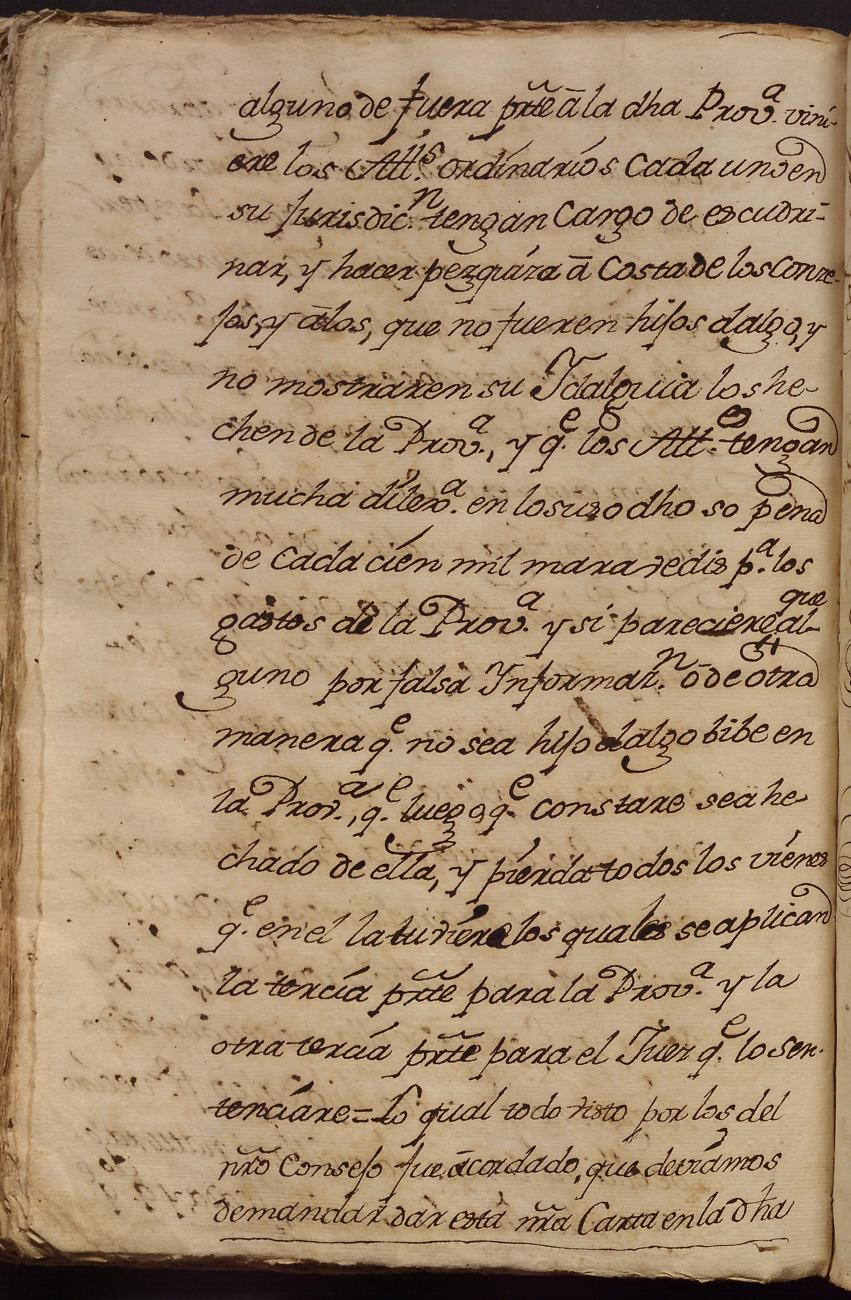 alguno de fuera prte â la dha Prov.ª vini-
ere los All.s ordinarios cada uno en
su Jurisdic.n tengan Cargo de escudri-
nar, y hacer pezquiza â Costa de los conze-
jos, y âlos, que no fueren hijos dalgo, y
no mostraren su Ydalguia los he-
chen de la Prov.ª, y q.e los All.es tengan
mucha dilex.ª en lo suso dho so pena
de cada cien mil maravedis p.ª los
gastos de la Prov.ª y si pareciere que al-
guno por falsa Ynformaz.n ô de ôtra
manera q.e no sea hijo dalgo bibe en
la Prov.ª, q.e luego q.e constare sea he-
chado de ella, y pierda todos los vienes
q.e en el la tuviere los quales se aplican
la tercia prte para la Prov.ª y la
otra tercia prte para el Juez q.e lo sen-
tenciare = Lo qual todo visto por los del
nro Consejo fue âcordado, que deviamos
demandar dar esta nra Carta en la dha